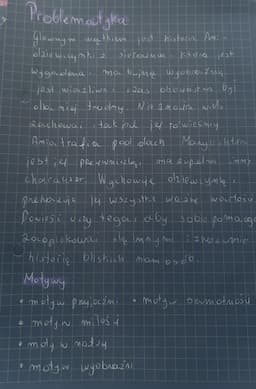 Problematyka
Głównym wątkiem jest historia Ani -
dziewczynki z sierocińca która jest
wygadana, ma bujną wyobraźnię
jest wrażliwa. czas
dla niej trudny. Nie umiała
zachować tak jak jej rówieśnicy
Ania trafia pod dach Maryli która
jest jej ma zupełnie inny
charakter. Wychowuje dziewczynkę,
przekazuje jej wszystkie ważne wartości
Powieść uczy tego, aby sobie pomagać
zaopiekować się innymi
historię bliskich nam osób.
Motywy
• motyw przyjaźni • motyw samotności
• motyw miłości
• motyw
• motyw wyobraźni